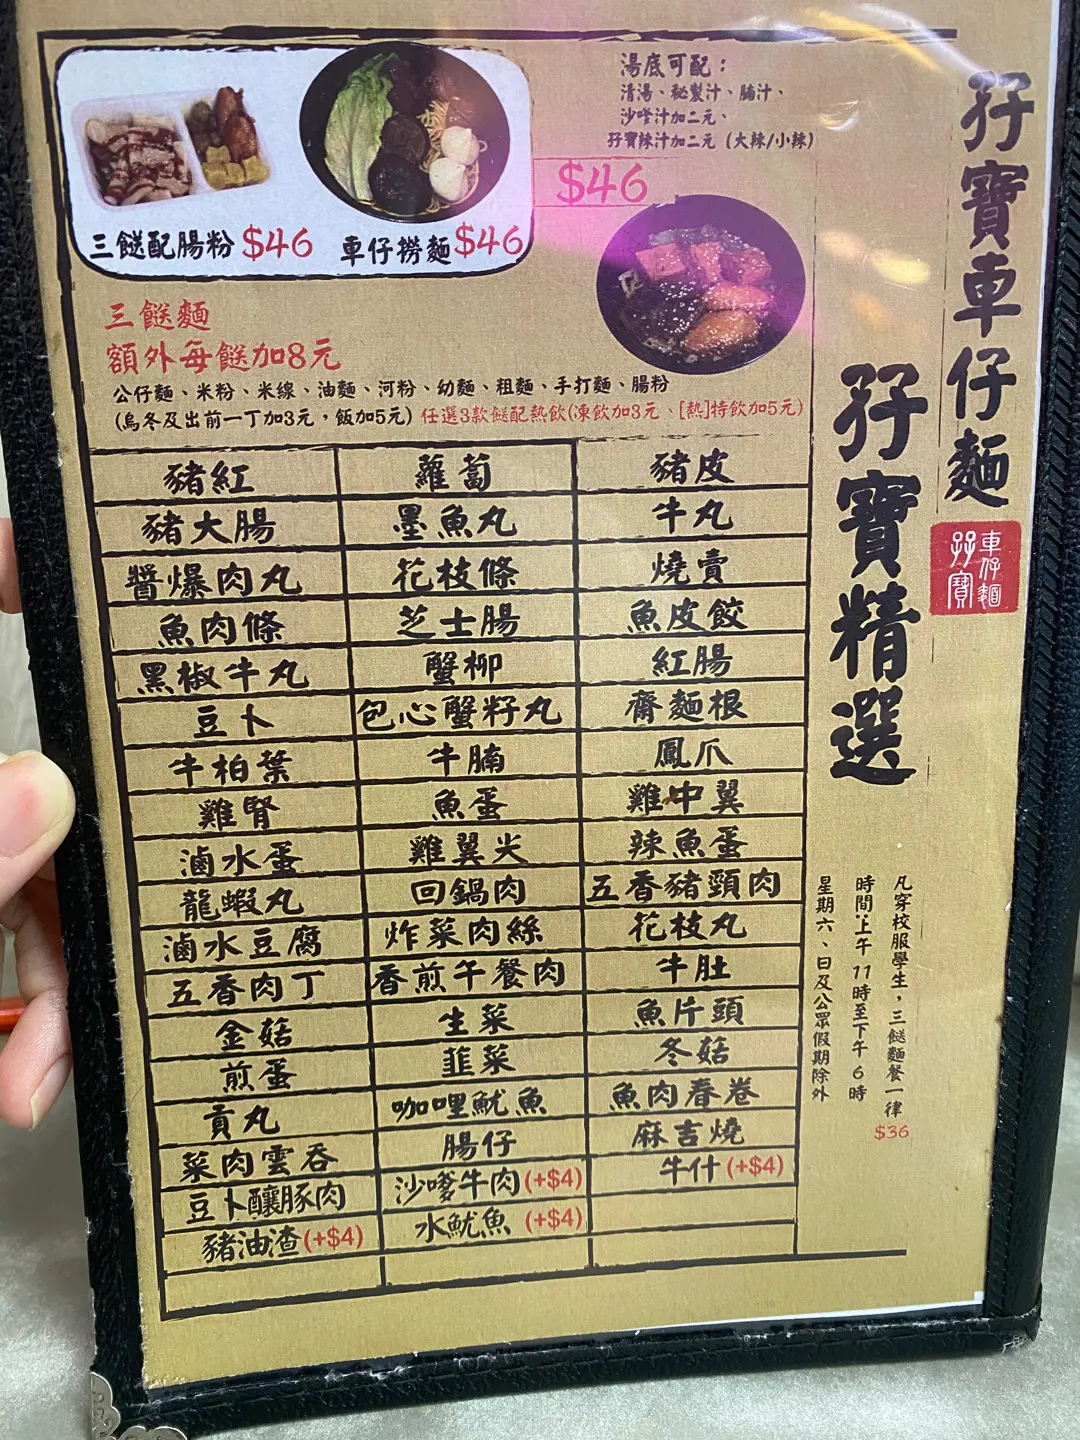 孖寶車仔麵
車仔麵
孖寶
孖寶精選
湯底可配：
清湯、秘製汁、腩汁、
沙嗲汁加二元、
孖寶辣汁加二元（大辣/小辣）
$46
三餸配腸粉 $46
車仔撈麵 $46
三餸麵
額外每餸加8元
公仔麵、米粉、米線、油麵、河粉、幼麵、粗麵、手打麵、腸粉
(烏冬及出前一丁加3元，飯加5元) 任選3款餸配熱飲(凍飲加3元、[熱]特飲加5元)
豬紅 蘿蔔 豬皮
豬大腸 墨魚丸 牛丸
醬爆肉丸 花枝條 燒賣
魚肉條 芝士腸 魚皮餃
黑椒牛丸 蟹柳 紅腸
豆卜 包心蟹籽丸 齋麵根
牛柏葉 牛腩 鳳爪
雞腎 魚蛋 雞中翼
滷水蛋 雞翼尖 辣魚蛋
龍蝦丸 回鍋肉 五香豬頸肉
滷水豆腐 炸菜肉絲 花枝丸
五香肉丁 香煎午餐肉 牛肚
金菇 生菜 魚片頭
煎蛋 韮菜 冬菇
貢丸 咖哩魷魚 魚肉春卷
菜肉雲吞 腸仔 麻吉燒
豆卜釀豚肉 沙嗲牛肉(+$4) 牛什(+$4)
豬油渣(+$4) 水魷魚(+$4)
凡穿校服學生，三餸麵餐一律$36
時間:上午11時至下午6時
星期六、日及公眾假期除外